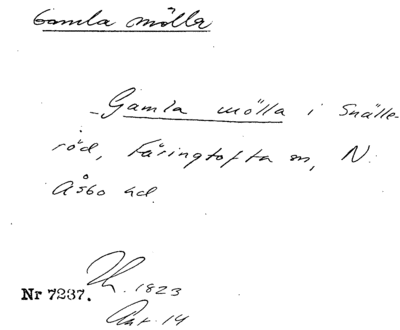 Gamla mölla
Gamla mölla i Snälle-
röd, Färingtofta sn, N.
Åsbo hd.
Nr 7237. Th. 1823
Aat. 14